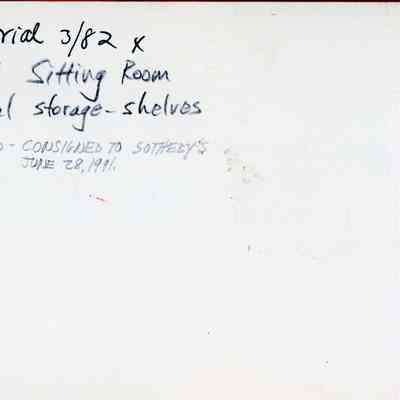 rial 3/82 x
Sitting Room
l storage-shelves
- CONSIGNED TO SOTHEBY'S
JUNE 28, 1991.